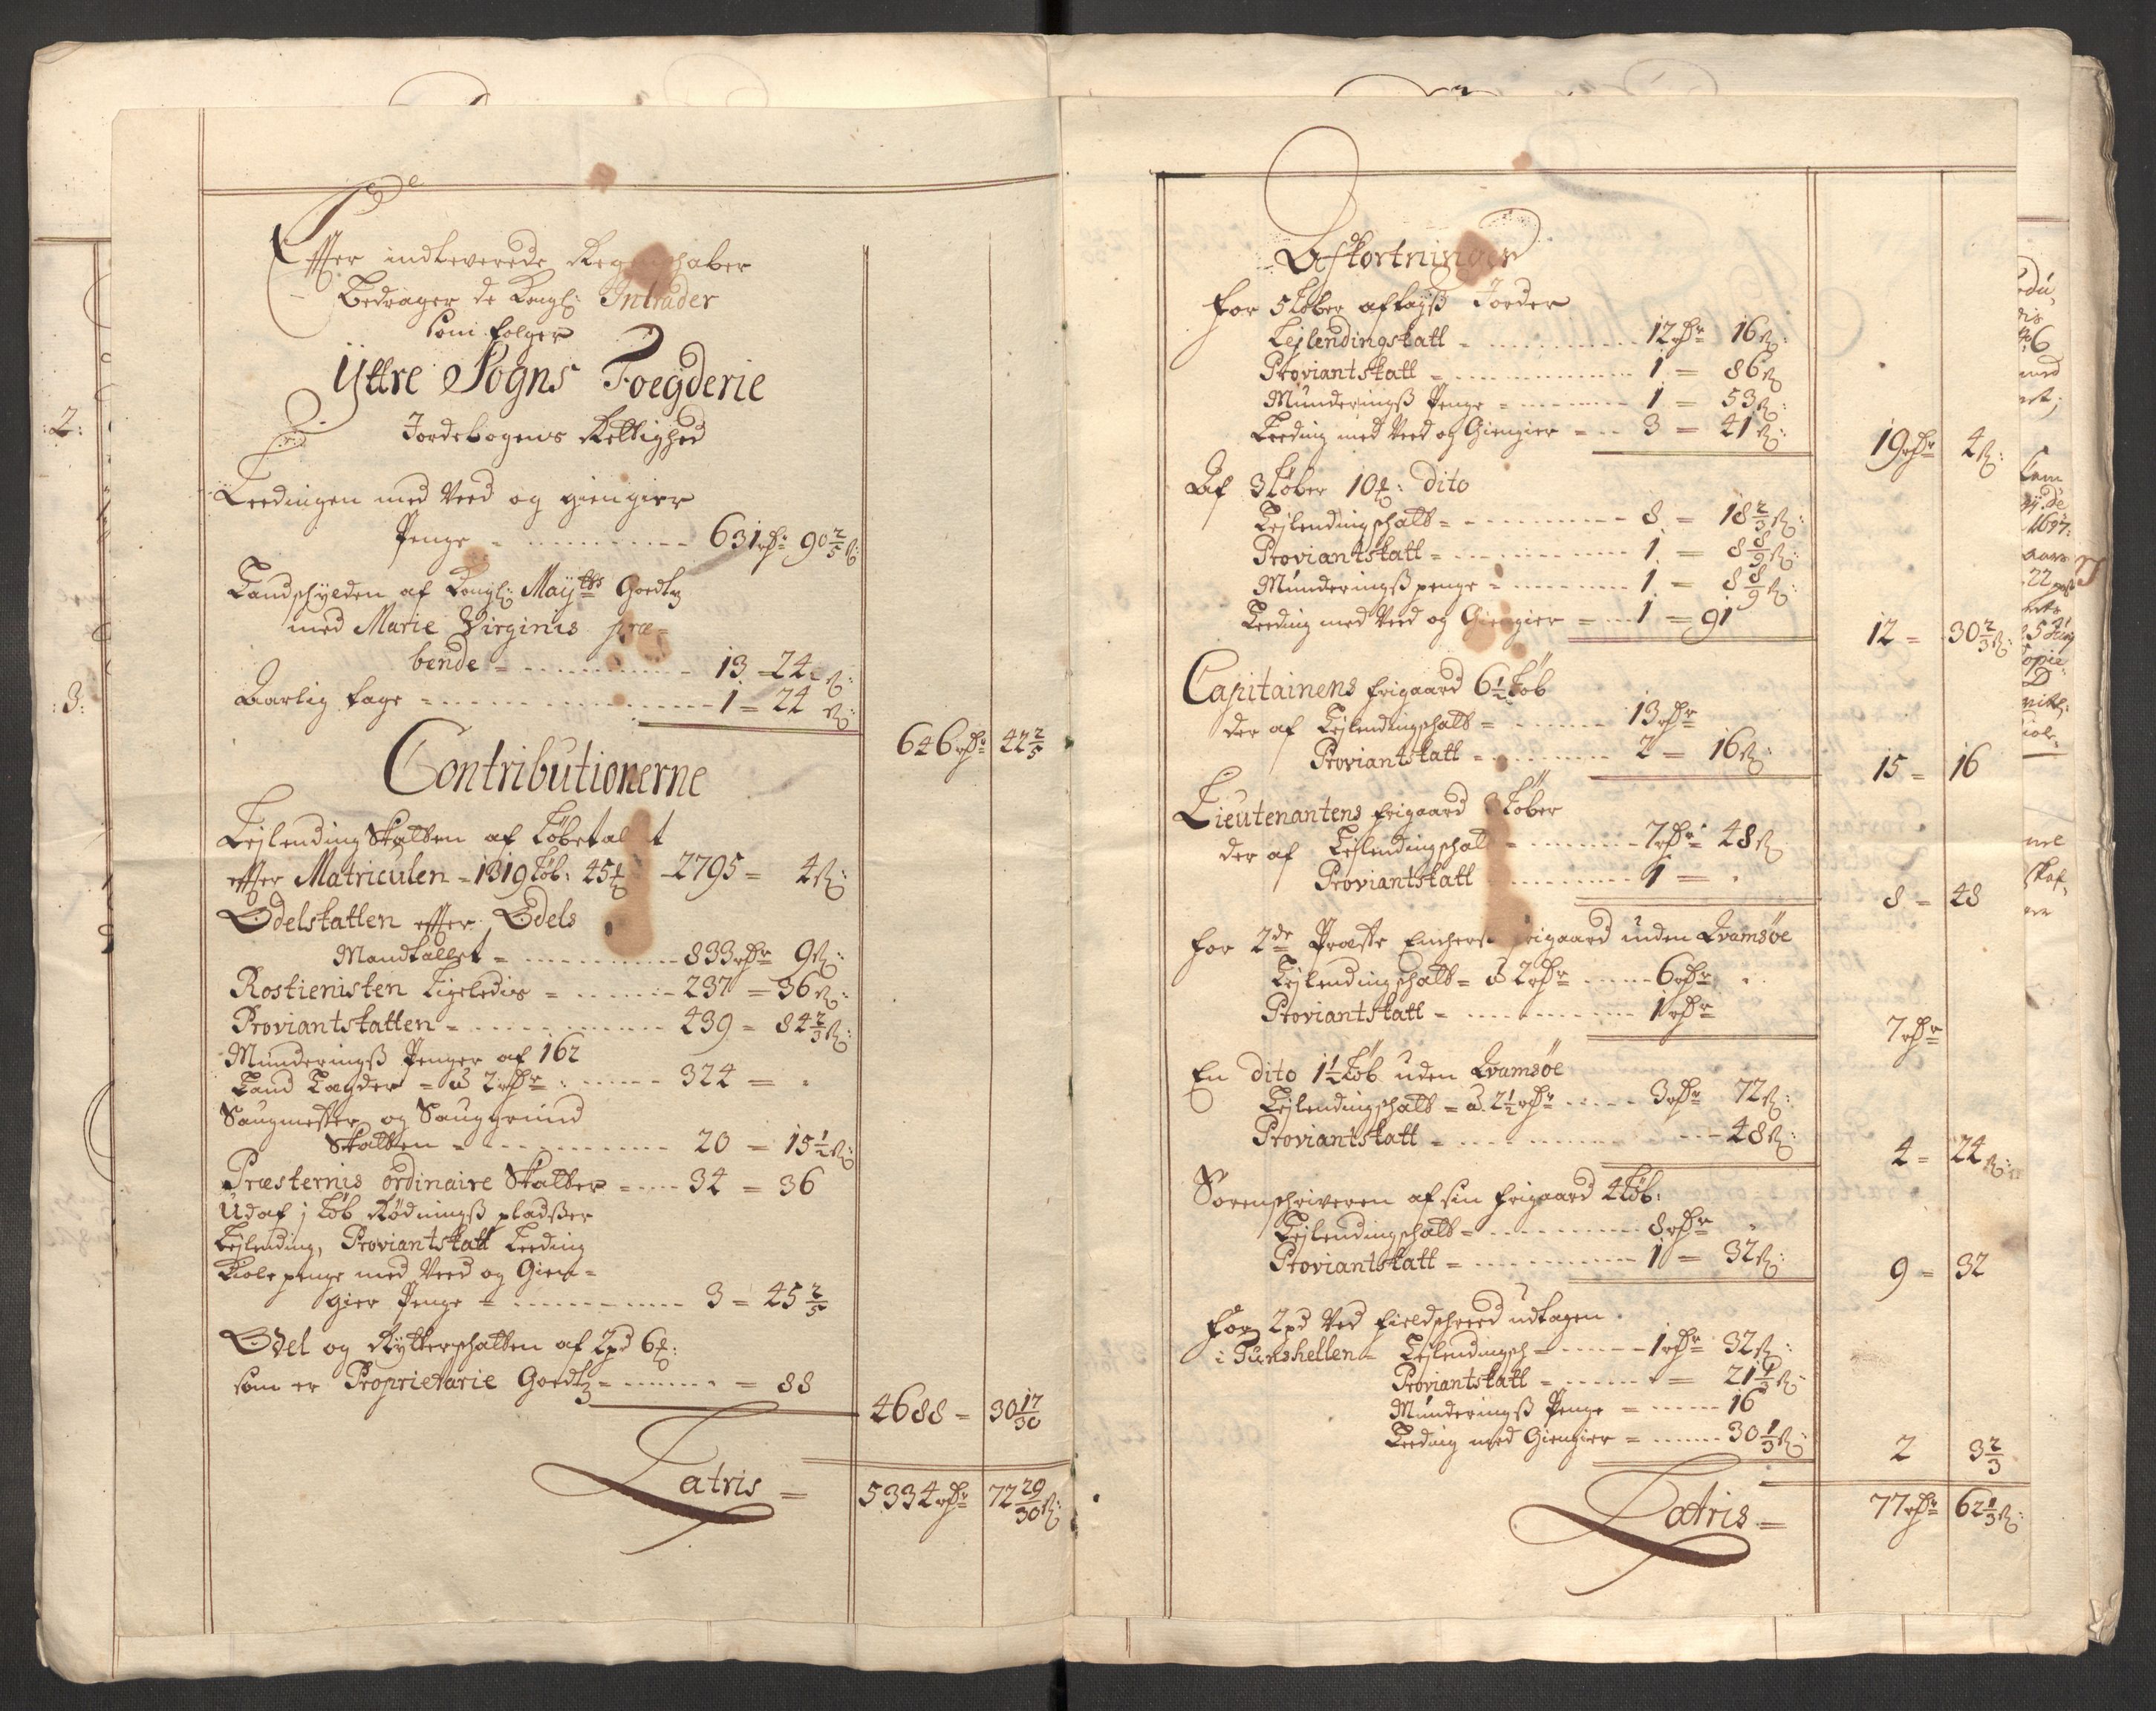 Effter indleverede Regenschaber
Bedrager de Kongl: Intrader
som følger
Yttre Sogns Foegderie
Jordebogens Rettighed
Leedingen med Veed og giengier
Penge - 631 rdr 90 2/5 s:
Landschylden af Kongl: Mayts Goedtz
med Marie Virginis præ-
bende - 13 - 24 s:
Aarlig tage - 1 - 24 s:
646 rdr 42 2/5
Contributionerne
Lejlending Skatten af Løbetallet
effter Matriculen - 1319 Løb: 45 - 2795 - 4 s:
Odelskatten effter Odels
Mandtallet - 833 rdr 9 s:
Rostienisten Ligeledis - 237 - 36 s:
Proviantskatten - 439 - 84 2/3 s:
Munderingß Penger af 162
Land Lægder - a 2 rdr - 324 -
Saugmester og Sauggrund
Skatten - 20 - 15 1/2 s:
Præsternis ordinaire Skatter - 34 - 36
Udaf 1 Løb Rødningß pladßer
Lejlending, Proviantskatt Leeding
Kole penge med Veed og Gien-
gier Penge - 3 - 45 2/5
Odel og Rytterschatten af 2 pd 6
som er Proprietarie Goedtz - 88
4688 - 30 17/30
Latris - 5334 rdr 72 29/30 s:
Afkortninger
For 5 Løber aftagß Jorder
Lejlendingskatt - 12 rdr 16 s:
Proviantskatt - 1 - 86 s
Munderingß Penge - 1 - 53 s:
Leeding med Veed og Giengier - 3 - 41 s:
19 rdr 4 s:
Af 3 Løber 10: dito
Lejlendingschatt - 8 - 18 2/3 s:
Proviantskatt - 1 - 8 8/9 s:
Munderingß penge - 1 - 8 8/9 s:
Leeding med Veed og Giengier - 1 - 91
12 - 30 2/3 s:
Capitainens frigaard 6 1/2 Løb
der af Lejlendingschatt - 13 rdr
Proviantskatt - 2 - 16 s:
15 - 16
Lieutenantens frigaard 3 Løber
der af Lejlendingschatt - 7 rdr 48 s
Proviantskatt 1 -
8 - 48
For 2de Præste Enchers frigaard inden Qvamsøe
Lejlendingschatt - a 2 rdr 6 rdr
Proviantskatt - 1 rdr
7 rdr
En dito 1 1/2 Løb uden Qvamsøe
Lejlendingschatt - a 2 1/2 rdr 3 rdr 72 s:
Proviantskatt - 48 s:
4 - 24 s:
Sorenschriveren af sin frigaard 4 Løb:
Lejlendingschatt - 8 rdr
Proviantskatt - 1 - 32 s:
9 - 32
For 2 pd Ved fieldschreed udtagen
i Tunshellen - Lejlendingsch - 1 rdr 32 s:
Proviantskatt - 21 1/3 s:
Munderingß Penge - 16
Leeding med Giengier - 30 1/3 s:
2 3 2/3
Latris - 77 rdr 62 1/3 s:
:2:
:3: